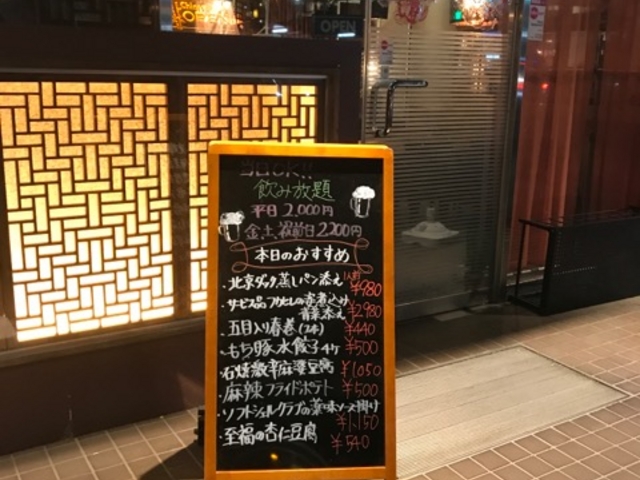 OPEN
当日OK!!
飲み放題
平日 2,000円
金、土、祝前日 2,200円
本日のおすすめ
・北京ダック蒸しパン添え 1人前 ¥980
・サービス品 フカヒレの姿煮込み
青菜添え ¥2,980
・五目入り春巻(2本) ¥440
・もち豚水餃子4ヶ ¥500
・石焼激辛麻婆豆腐 ¥1,050
・麻辣フライドポテト ¥500
・ソフトシェルクラブの薬味ソース掛け
¥1,150
・至福の杏仁豆腐
¥540